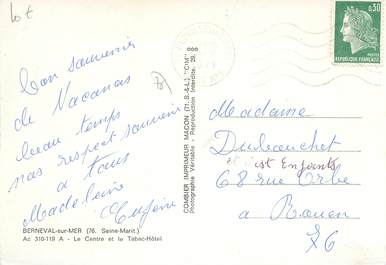 lot
bon souvenir
de Vacanas
beau temps
nos respect souvenir
a tous
Madeleine
Eugène
BERNEVAL-sur-MER (76. Seine-Marit.)
Ac 310-119 A - Le Centre et le Tabac-Hôtel
COMBIER IMPRIMEUR MACON (71. S.-&-L.) "CIM"
Photographie Véritable - Reproduction Interdite. 29.
0,30
POSTES
REPUBLIQUE FRANÇAISE
Madame
Dubauchet
et est Enfants
68 rue Orbe
a Rouen
76